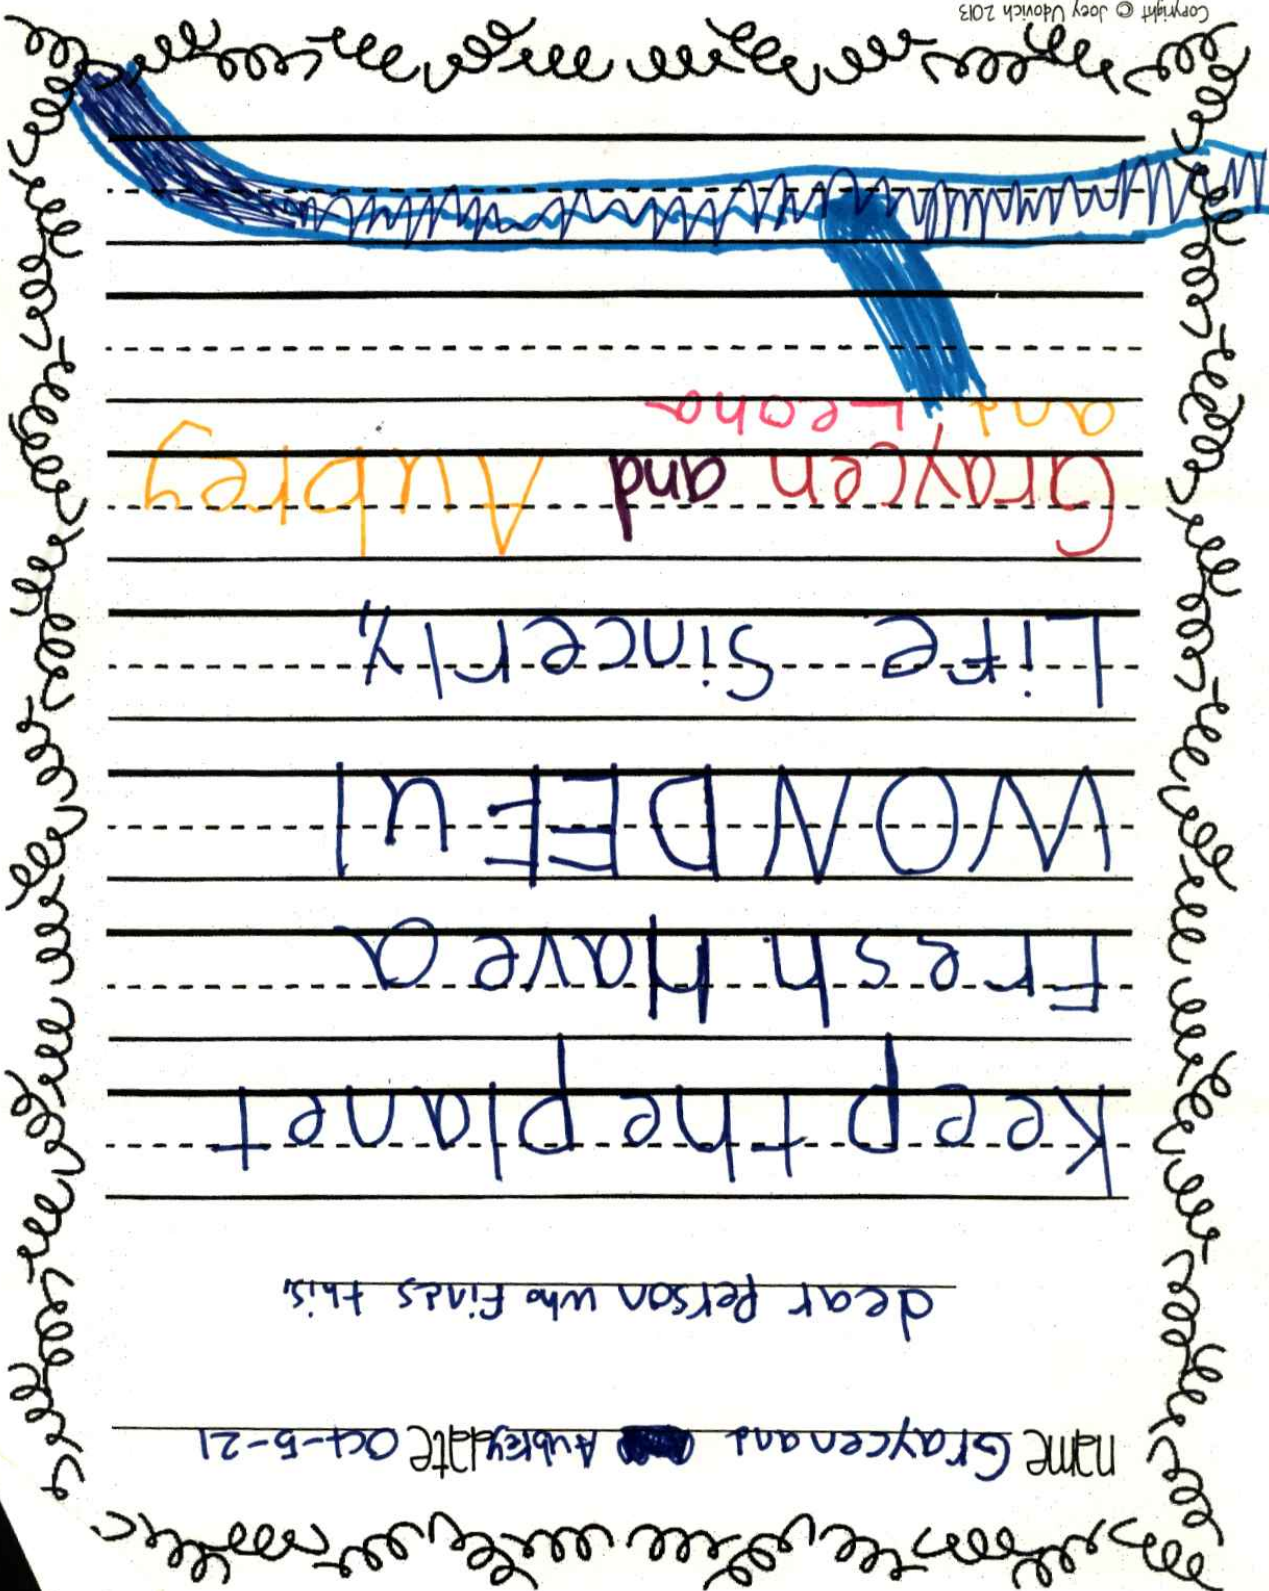 name Graycen and Aubrey date Oct-5-21
dear Person who finds this,
Keep the planet
Fresh Have a
WONDEFul
Life Sincerly,
Graycen and Aubrey
and Leona
Copyright © Joey Udovich 2013